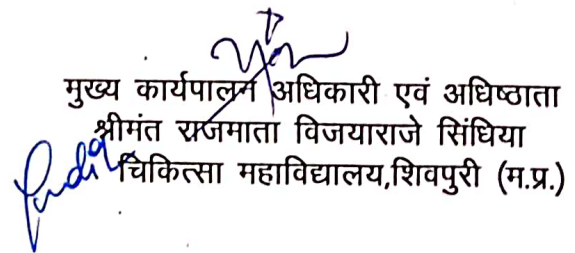 मुख्य कार्यपालन अधिकारी एवं अधिष्ठाता
श्रीमंत राजमाता विजयाराजे सिंधिया
चिकित्सा महाविद्यालय,शिवपुरी (म.प्र.)